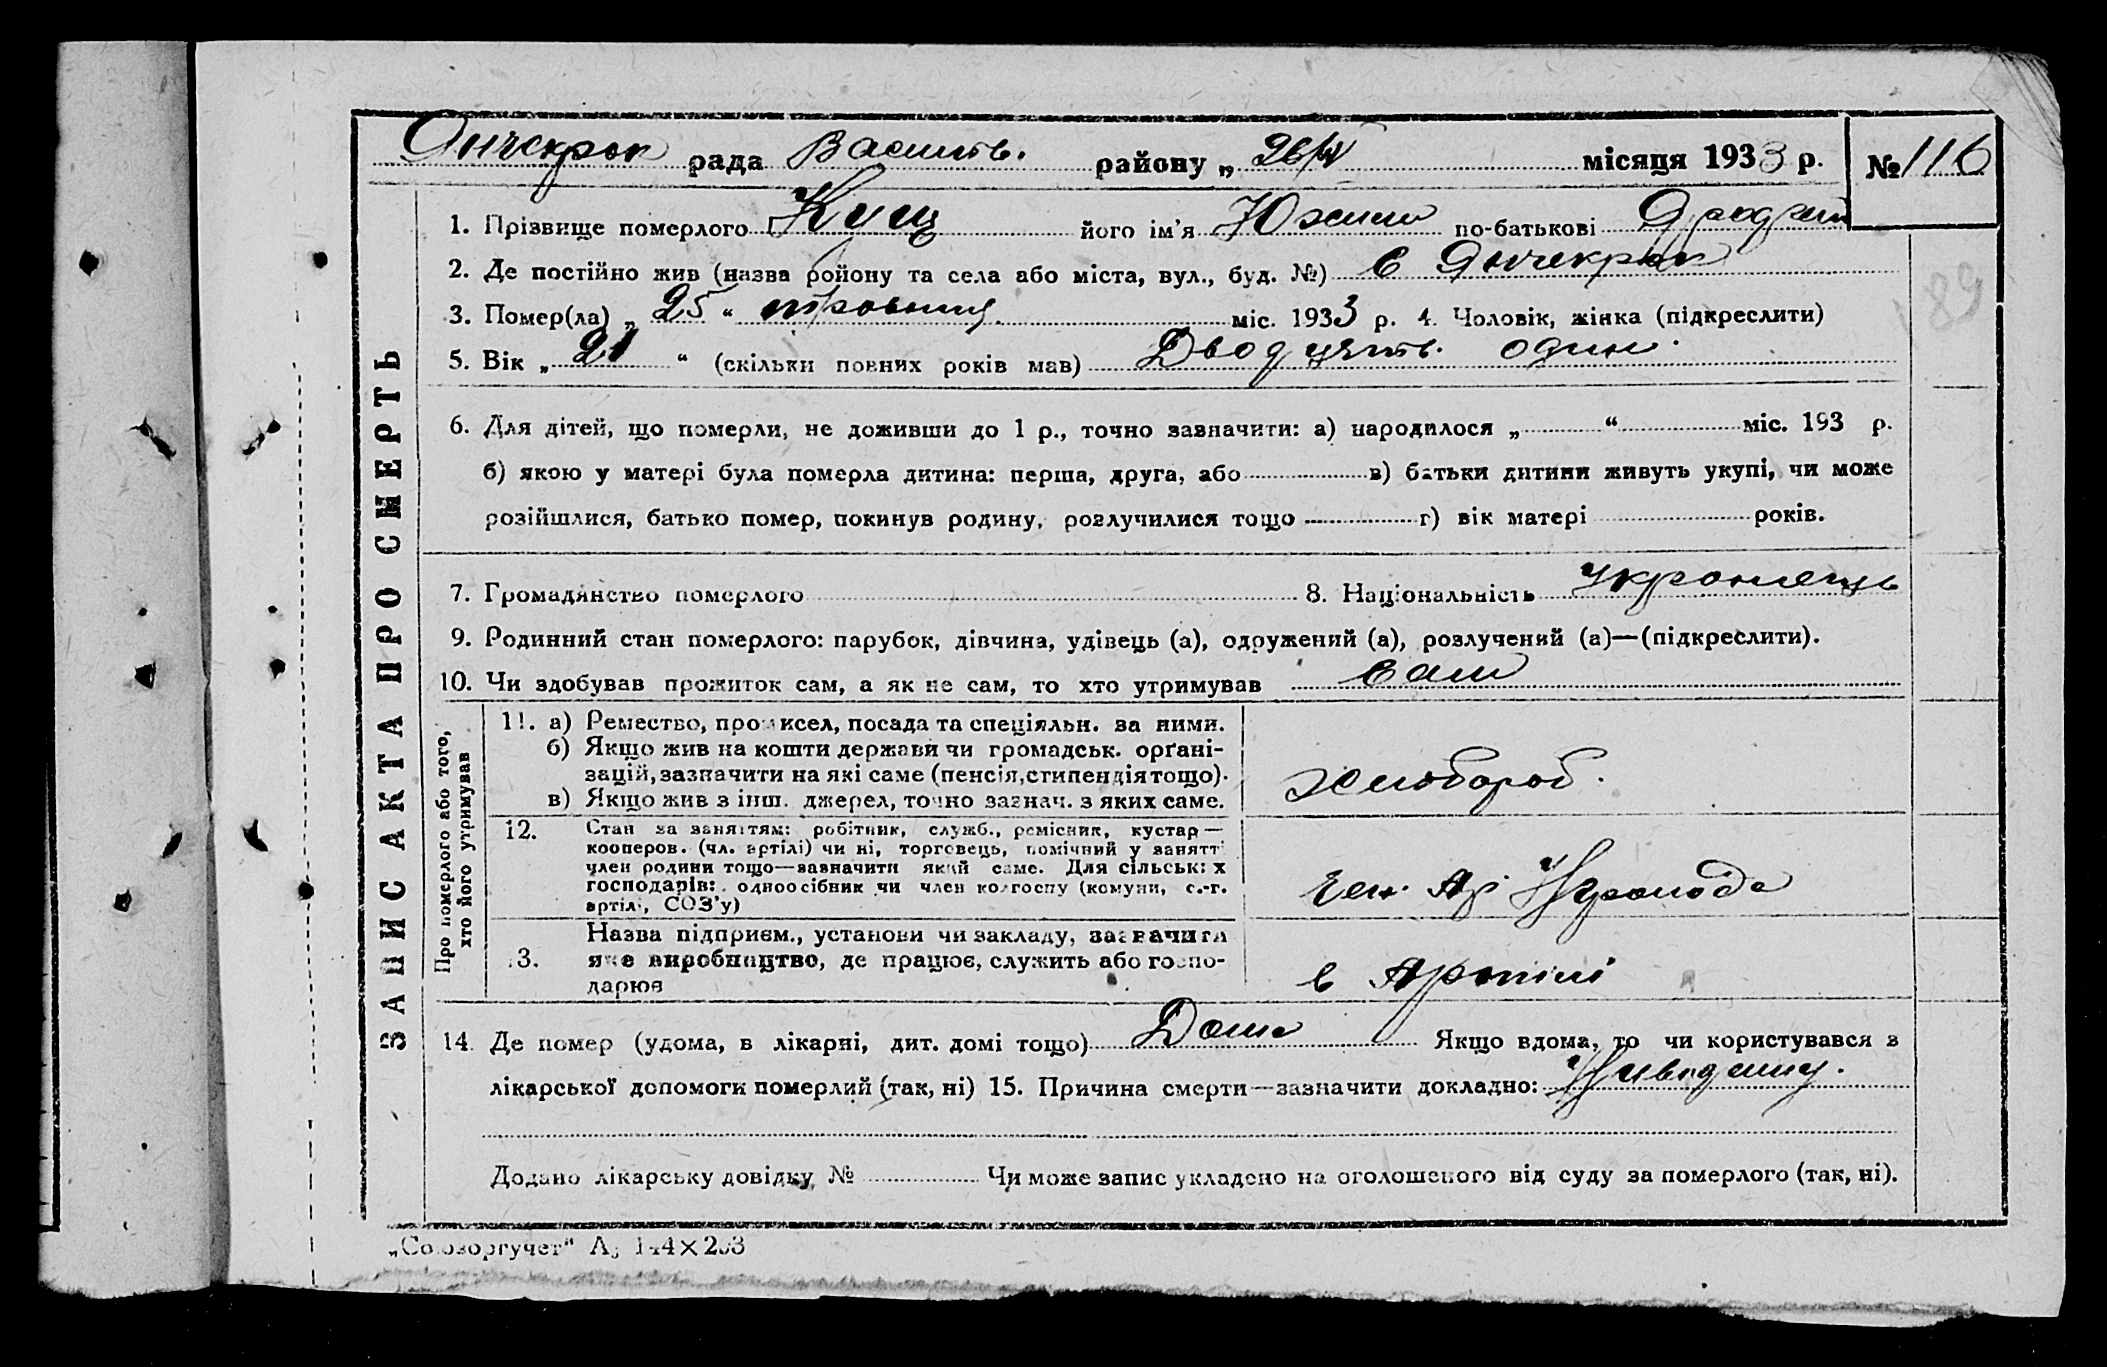 Янчекрак рада Василів. району „ 26/V місяця 1933 р. № 116
ЗАПИС АКТА ПРО СМЕРТЬ
1. Прізвище померлого Кущ його ім'я Юхим по-батькові
2. Де постійно жив (назва району та села або міста, вул., буд. №) с Янчекрак
3. Помер(ла) „ 25 “ травня міс. 1933 р. 4. Чоловік, жінка (підкреслити)
189
5. Вік „ 21 “ (скільки повних років мав) Двадцять один.
6. Для дітей, що померли, не доживши до 1 р., точно зазначити: а) народилося „ “ міс. 193 р.
б) якою у матері була померла дитина: перша, друга, або в) батьки дитини живуть укупі, чи може
розійшлися, батько помер, покинув родину, розлучилися тощо г) вік матері років.
7. Громадянство померлого 8. Національність українець
9. Родинний стан померлого: парубок, дівчина, удівець (а), одружений (а), розлучений (а)—(підкреслити).
10. Чи здобував прожиток сам, а як не сам, то хто утримував сам
Про померлого або того,
хто його утримував
11. а) Ремество, промисел, посада та спеціяльн. за ними.
б) Якщо жив на кошти держави чи громадськ. орґані-
зацій, зазначити на які саме (пенсія, стипендія тощо).
в) Якщо жив з інш. джерел, точно зазнач. з яких саме.
хлібороб.
12. Стан за заняттям: робітник, служб., ремісник, кустар—
кооперов. (чл. артілі) чи ні, торговець, помічний у занятті
член родини тощо—зазначити який саме. Для сільських
господарів: одноосібник чи член колгоспу (комуни, с.-г.
артілі, СОЗ'у)
Член Ар
13. Назва підприєм., установи чи закладу, зазначити
яке виробництво, де працює, служить або госпо-
дарює
в Артілі
14. Де помер (удома, в лікарні, дит. домі тощо) Дома Якщо вдома, то чи користувався з
лікарської допомоги померлий (так, ні) 15. Причина смерти—зазначити докладно:
Додано лікарську довідку № Чи може запис укладено на оголошеного від суду за померлого (так, ні).
„Союзоргучет“ А5 144×203